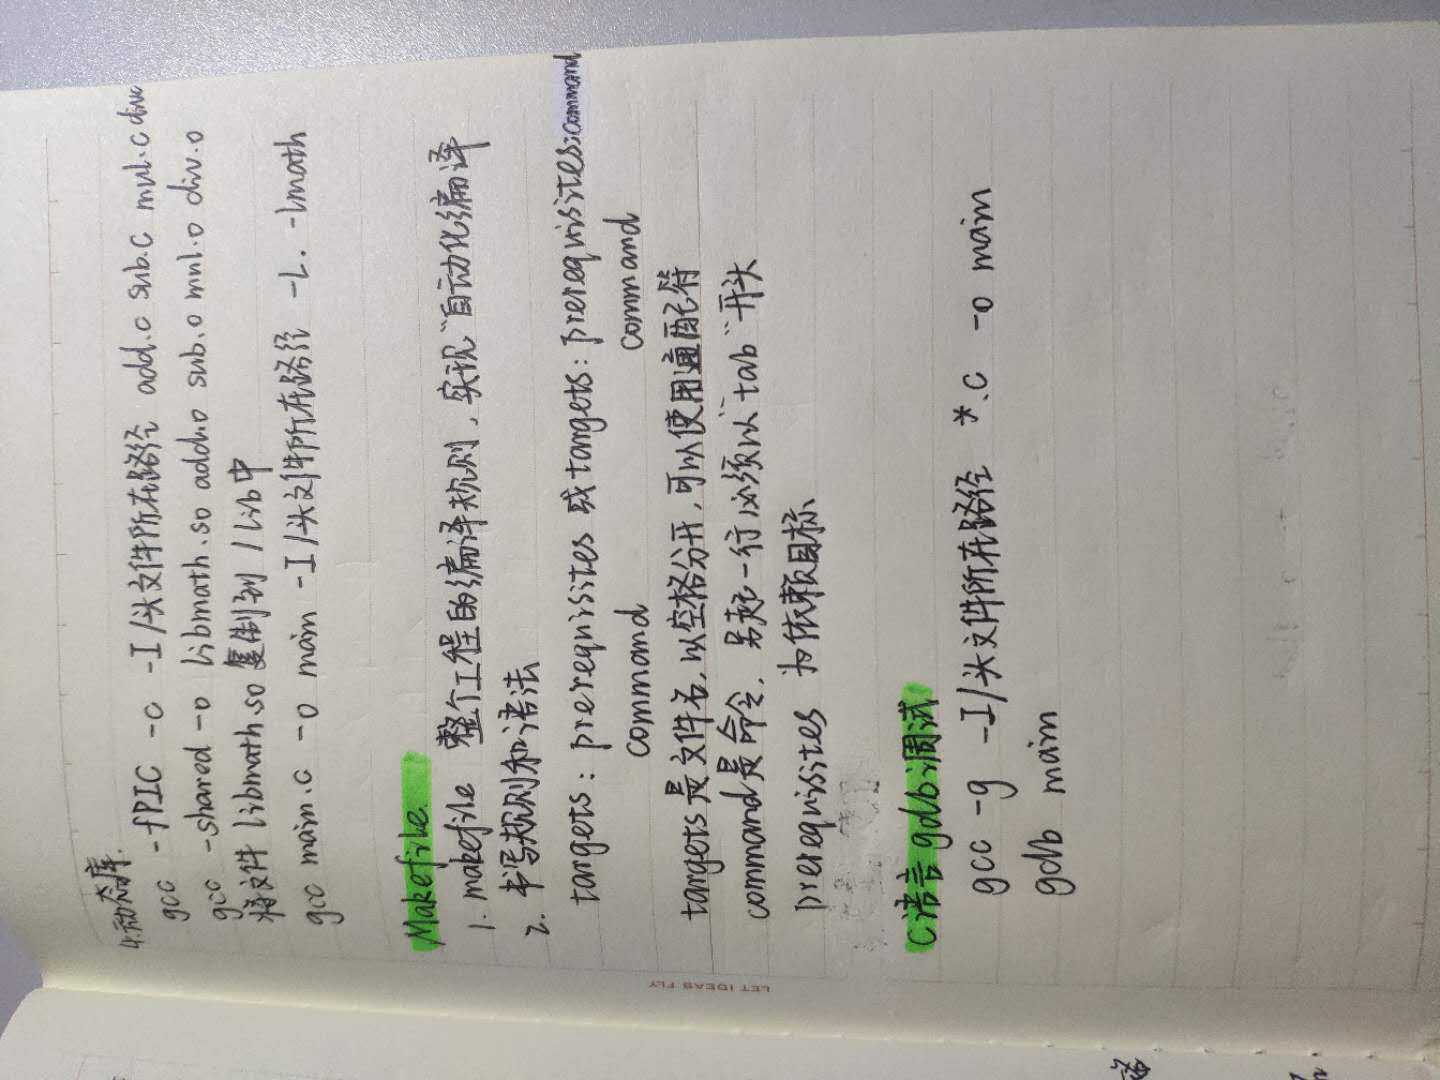 4.动态库.
gcc -fPIC -c -I/头文件所在路径 add.c sub.c mul.c div.c
gcc -shared -o libmath.so add.o sub.o mul.o div.o
将文件 libmath.so 复制到 /lib中
gcc main.c -o main -I/头文件所在路径 -L. -lmath
Makefile.
1. makefile 整个工程的编译规则，实现"自动化编译
2. 书写规则和语法
targets: prerequisites 或 targets: prerequisites;command
command command
targets是文件名，以空格分开，可以使用通配符
command是命令，另起一行必须以"tab"开头
prerequisites 为依赖目标
C语言 gdb调试
gcc -g -I/头文件所在路径 *.c -o main
gdb main
LET IDEAS FLY